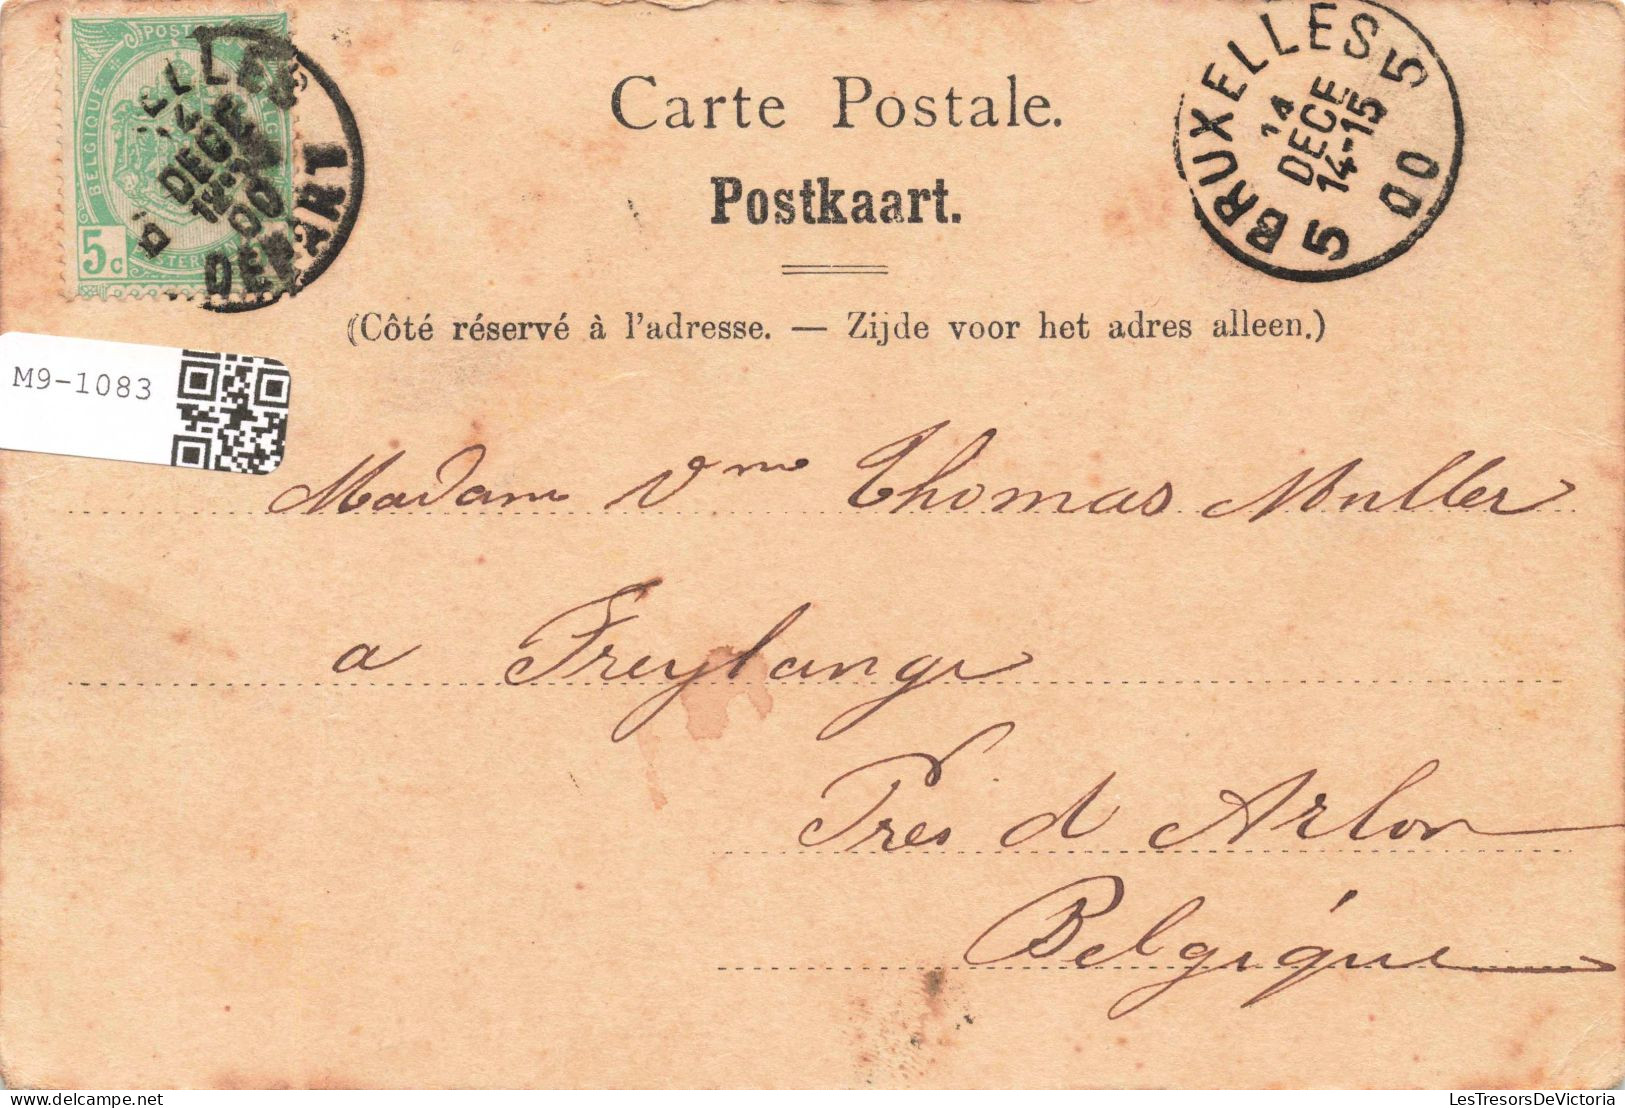 POST
BELGIQUE
5c
ELLES
14
DECE
12-
00
DEPART
BRUXELLES 5
14
DECE
14-15
5 00
Carte Postale.
Postkaart.
(Côté réservé à l'adresse. — Zijde voor het adres alleen.)
M9-1083
Madam Vme Thomas Muller
a Freylange
Près d Arlon
Belgique
LesTresorsDeVictoria.com
LesTresorsDeVictoria